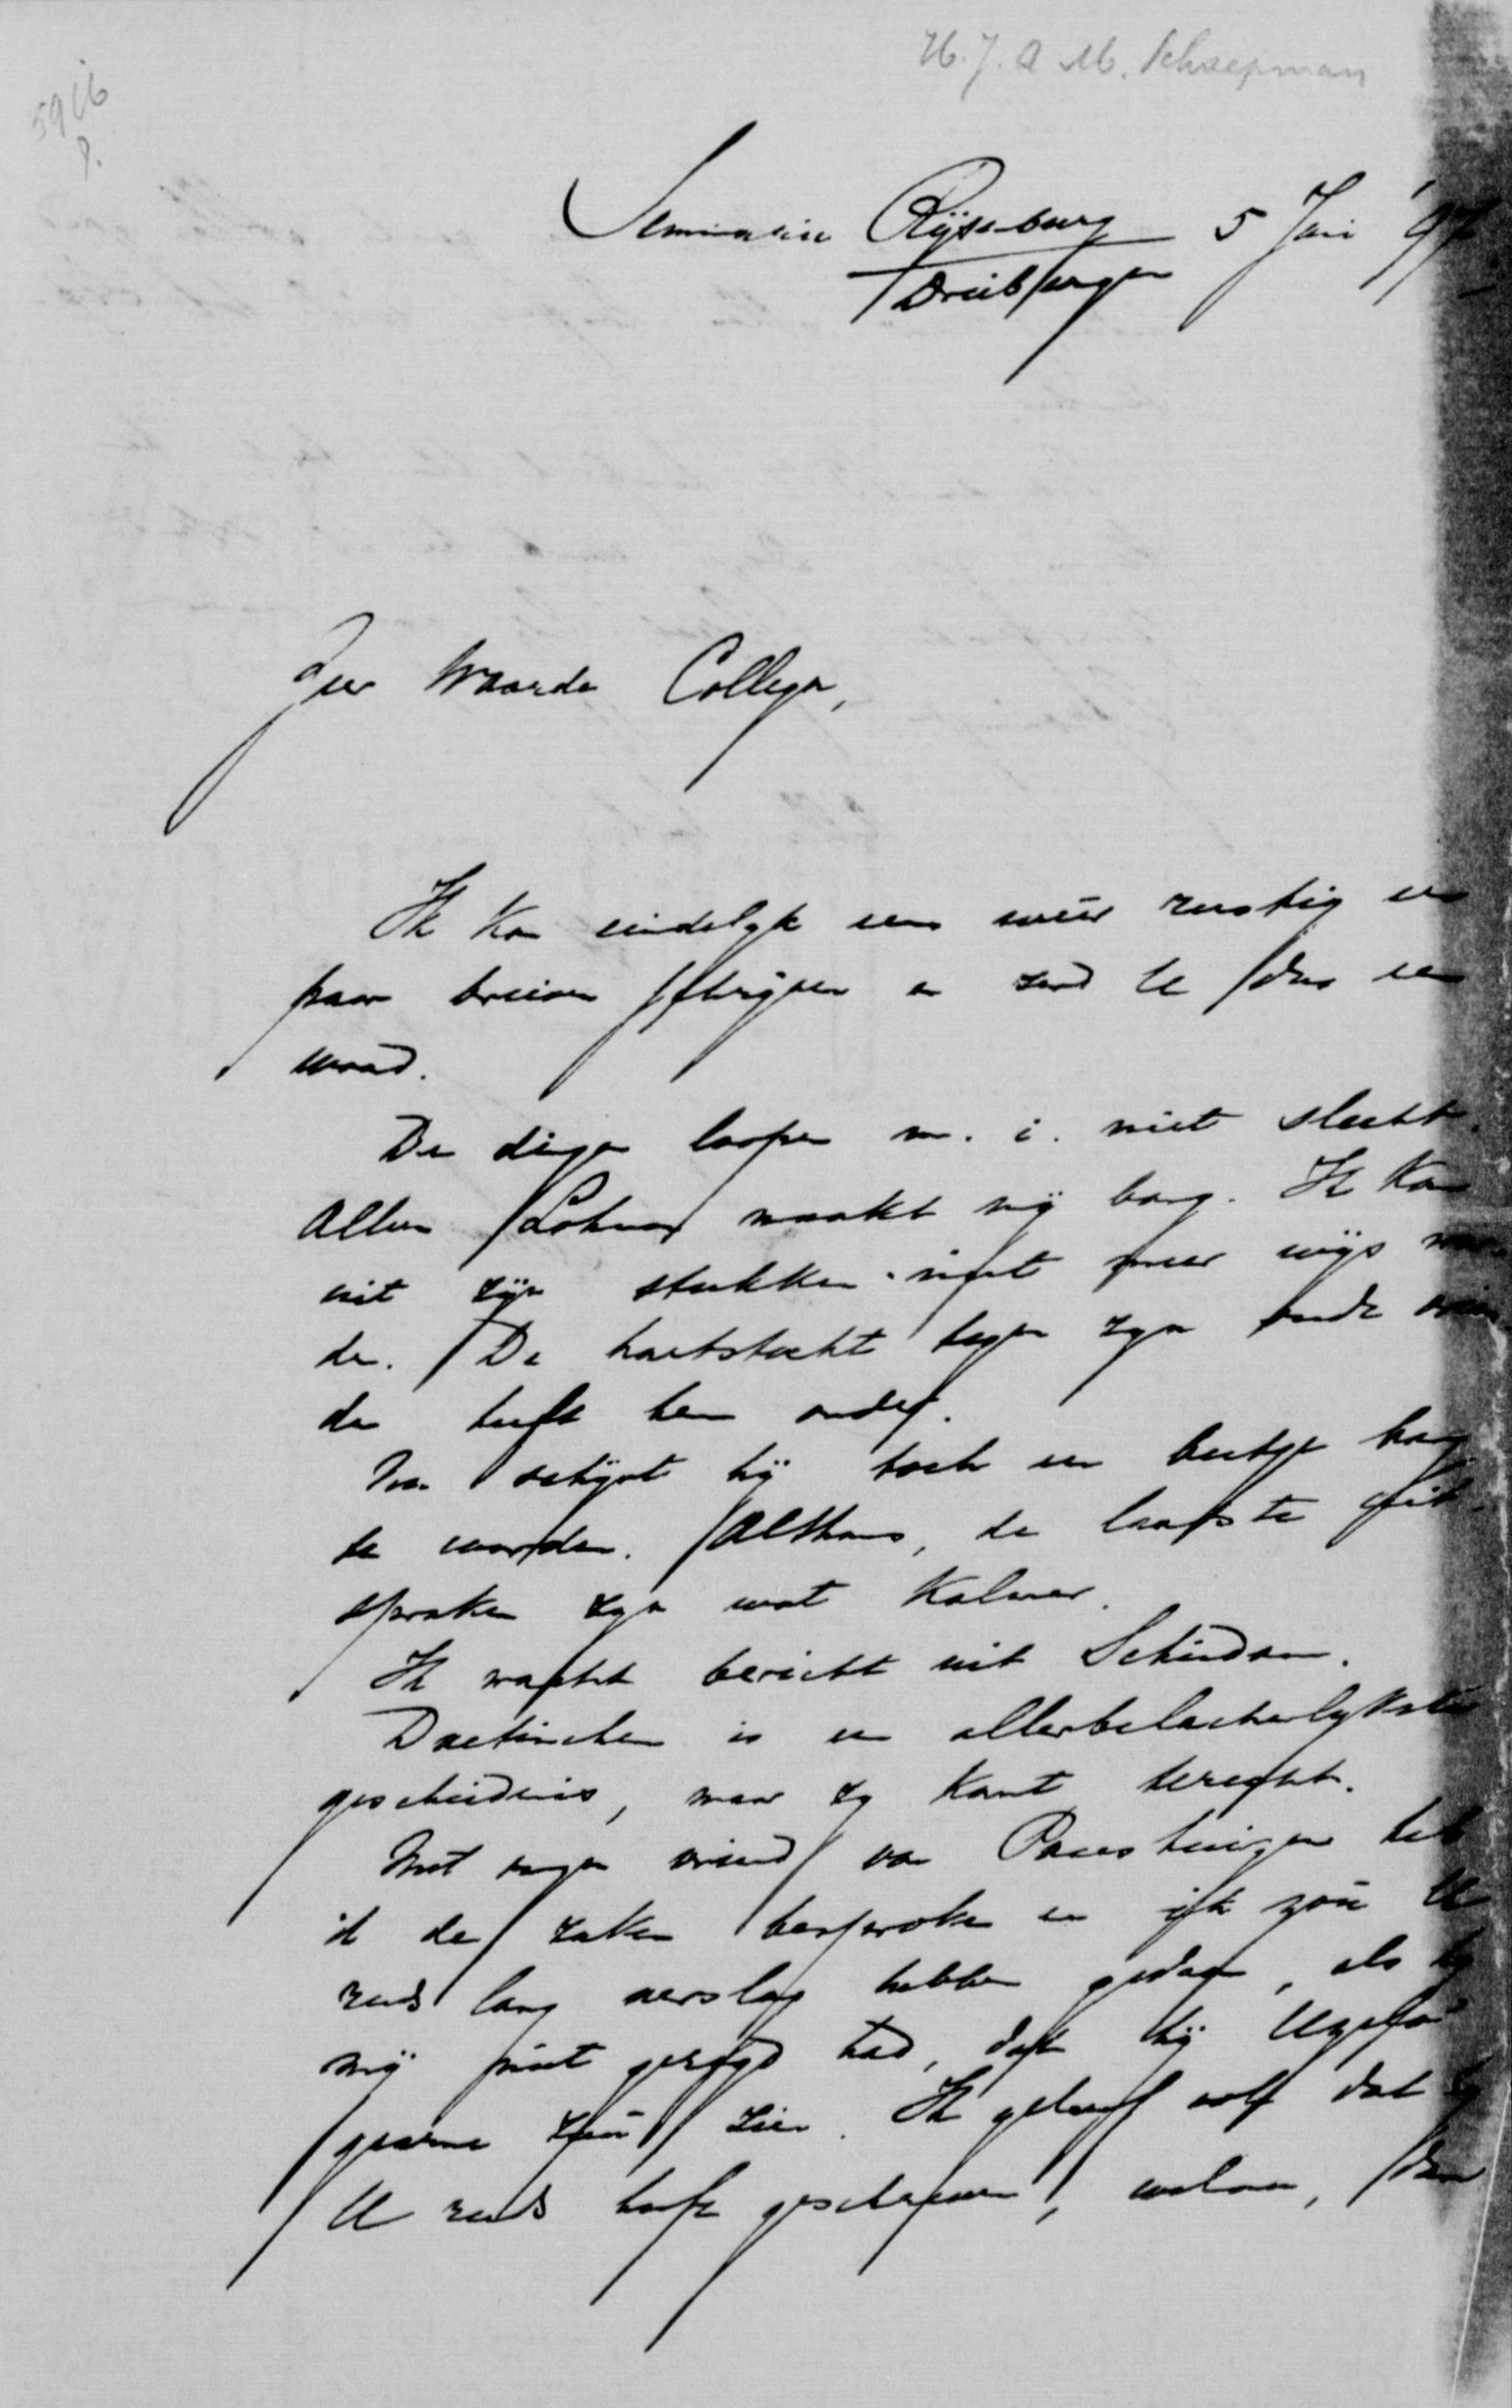 H.J.A.M. Schaepman
5916
Seminarie Rijsenburg 5 Juni '97
Driebergen
Zeer Waarde Collega,
Ik kan eindelyk eens weer rustig een
paar brieven schrijven en zend U dus een
woord.
De dingen loopen m. i. niet slecht.
Alleen Lohman maakt mij bang. Ik kan
uit zijn stukken niet meer wijs wor-
den. De hartstocht tegen zyn oude vrien
den heeft hem onder.
Nu schijnt hij toch een beetje bang
te worden. Althans, de laatste uit-
spraken zyn wat kalmer.
Ik wacht bericht uit Schiedam.
Doetinchem is een allerbelachelykste
geschiedenis, maar zy komt terecht.
Met onzen vriend van Basten heb
ik de zaken besproken en ik zou U
reeds lang verslag hebben gedaan, als hy
mij niet gezegd had, dat hij Uzelf
gaarne zou zien. Ik geloof ook dat hy
U reeds heeft geschreven, welnu, dan